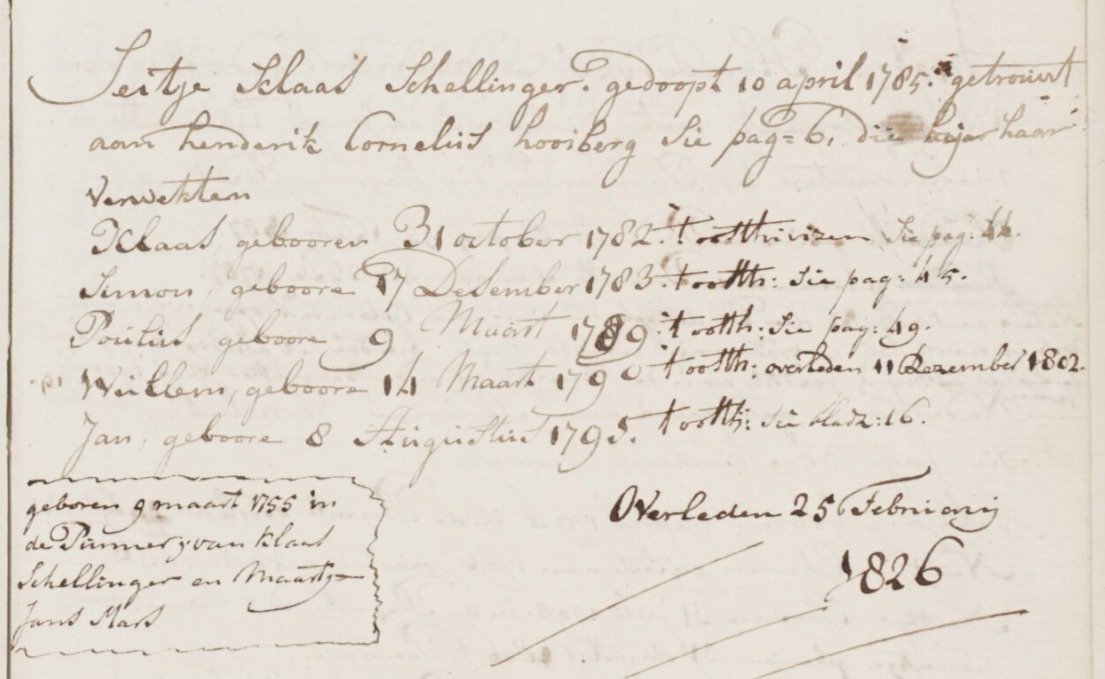 Seitje Klaas Schellinger. gedoopt 10 april 1785. getrouwt
aan henderik Cornelius hooiberg Sie pag= 6, die haar
verwekten
Klaas, gebooren 31 october 1782. t oosthuizen, Sie pag: 44.
Simon, geboore 17 Desember 1783. t oosth: Sie pag: 45.
Poulus geboore 9 Maart 1789. t oosth: Sie pag: 49.
Willem, geboore 14 Maart 1790 t oosth: overleden 11 Dezember 1802.
Jan, geboore 8 Augustus 1795. t oosth: Sie bladz: 16.
geboren 9 maart 1755 in
de Purmer, van Klaas
Schellinger en Maartje
Jans Mars
Overleden 25 Februarij
1826